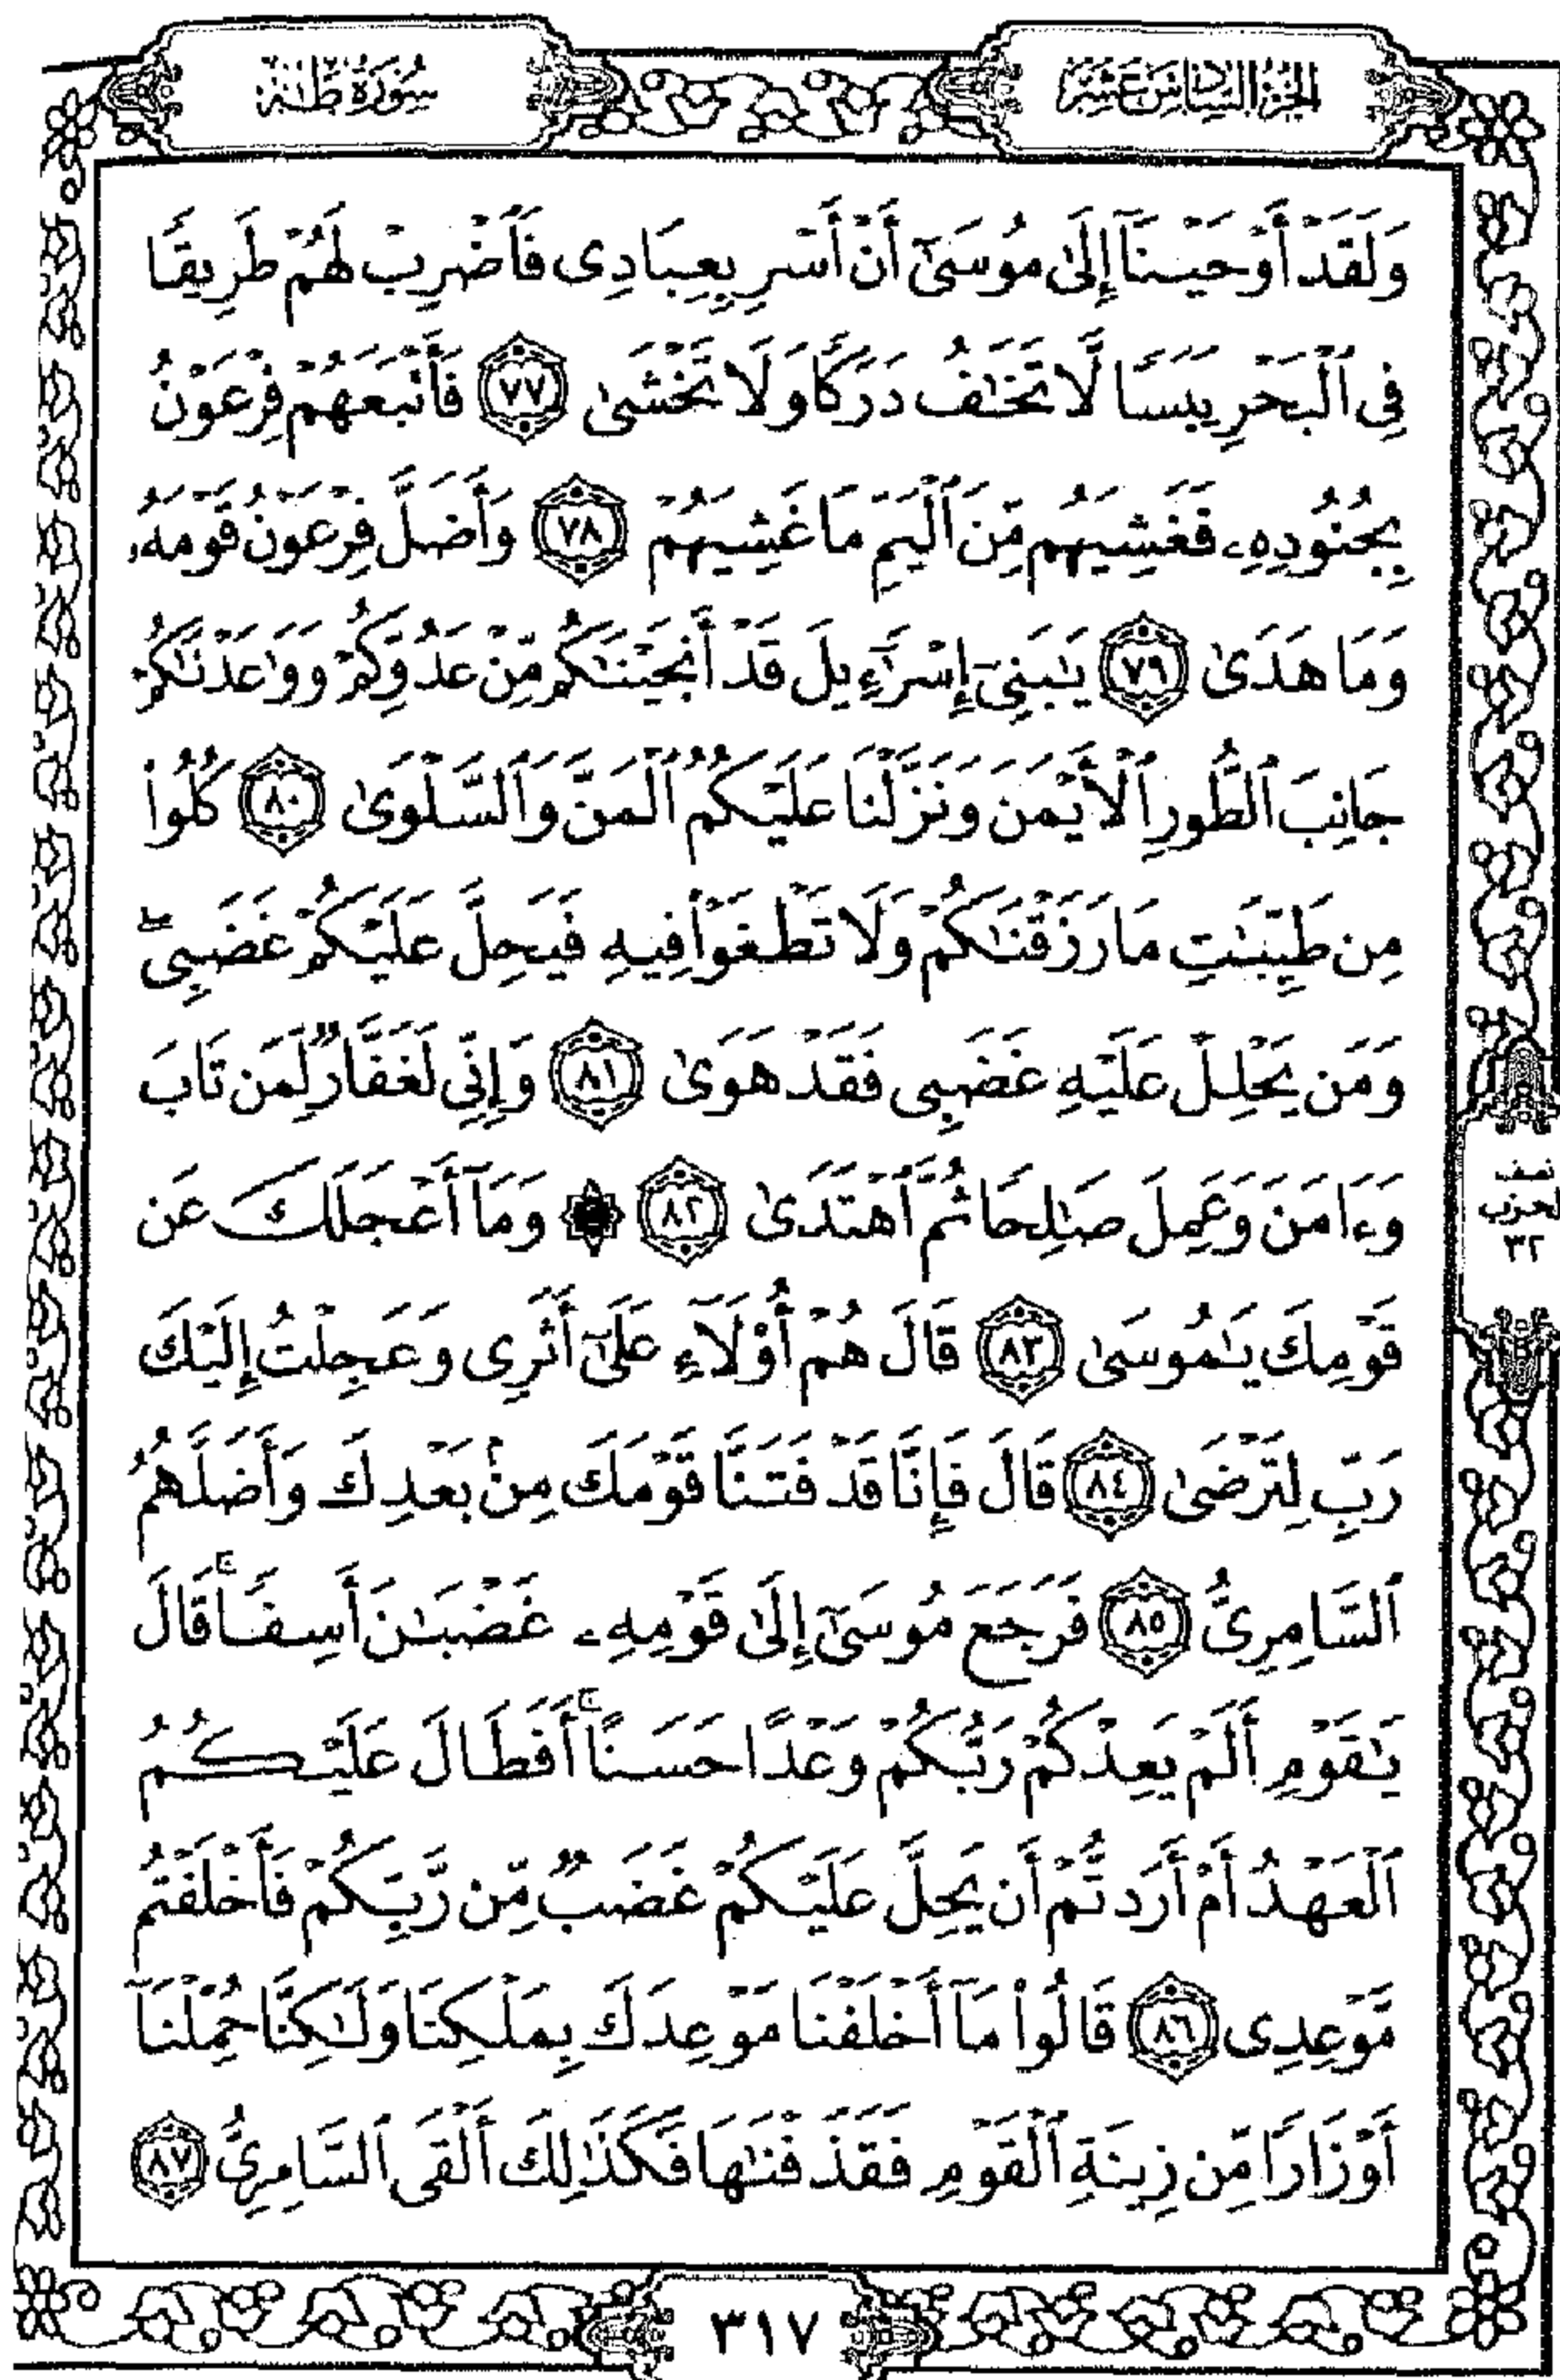 الجزء السادس عشر
سورة طه
وَلَقَدْ أَوْحَيْنَآ إِلَىٰ مُوسَىٰٓ أَنْ أَسْرِ بِعِبَادِى فَٱضْرِبْ لَهُمْ طَرِيقًا
فِى ٱلْبَحْرِ يَبَسًا لَّا تَخَٰفُ دَرَكًا وَلَا تَخْشَىٰ ٧٧ فَأَتْبَعَهُمْ فِرْعَوْنُ
بِجُنُودِهِۦ فَغَشِيَهُم مِّنَ ٱلْيَمِّ مَا غَشِيَهُمْ ٧٨ وَأَضَلَّ فِرْعَوْنُ قَوْمَهُۥ
وَمَا هَدَىٰ ٧٩ يَٰبَنِىٓ إِسْرَٰٓءِيلَ قَدْ أَنجَيْنَٰكُم مِّنْ عَدُوِّكُمْ وَوَٰعَدْنَٰكُمْ
جَانِبَ ٱلطُّورِ ٱلْأَيْمَنَ وَنَزَّلْنَا عَلَيْكُمُ ٱلْمَنَّ وَٱلسَّلْوَىٰ ٨٠ كُلُوا۟
مِن طَيِّبَٰتِ مَا رَزَقْنَٰكُمْ وَلَا تَطْغَوْا۟ فِيهِ فَيَحِلَّ عَلَيْكُمْ غَضَبِىۖ
وَمَن يَحْلِلْ عَلَيْهِ غَضَبِى فَقَدْ هَوَىٰ ٨١ وَإِنِّى لَغَفَّارٌ لِّمَن تَابَ
وَءَامَنَ وَعَمِلَ صَٰلِحًا ثُمَّ ٱهْتَدَىٰ ٨٢ ۞ وَمَآ أَعْجَلَكَ عَن
قَوْمِكَ يَٰمُوسَىٰ ٨٣ قَالَ هُمْ أُو۟لَآءِ عَلَىٰٓ أَثَرِى وَعَجِلْتُ إِلَيْكَ
رَبِّ لِتَرْضَىٰ ٨٤ قَالَ فَإِنَّا قَدْ فَتَنَّا قَوْمَكَ مِنۢ بَعْدِكَ وَأَضَلَّهُمُ
ٱلسَّامِرِىُّ ٨٥ فَرَجَعَ مُوسَىٰٓ إِلَىٰ قَوْمِهِۦ غَضْبَٰنَ أَسِفًاۚ قَالَ
يَٰقَوْمِ أَلَمْ يَعِدْكُمْ رَبُّكُمْ وَعْدًا حَسَنًاۚ أَفَطَالَ عَلَيْكُمُ
ٱلْعَهْدُ أَمْ أَرَدتُّمْ أَن يَحِلَّ عَلَيْكُمْ غَضَبٌ مِّن رَّبِّكُمْ فَأَخْلَفْتُم
مَّوْعِدِى ٨٦ قَالُوا۟ مَآ أَخْلَفْنَا مَوْعِدَكَ بِمَلْكِنَا وَلَٰكِنَّا حُمِّلْنَآ
أَوْزَارًا مِّن زِينَةِ ٱلْقَوْمِ فَقَذَفْنَٰهَا فَكَذَٰلِكَ أَلْقَى ٱلسَّامِرِىُّ ٨٧
نصف
لحزب
٣٢
٣١٧